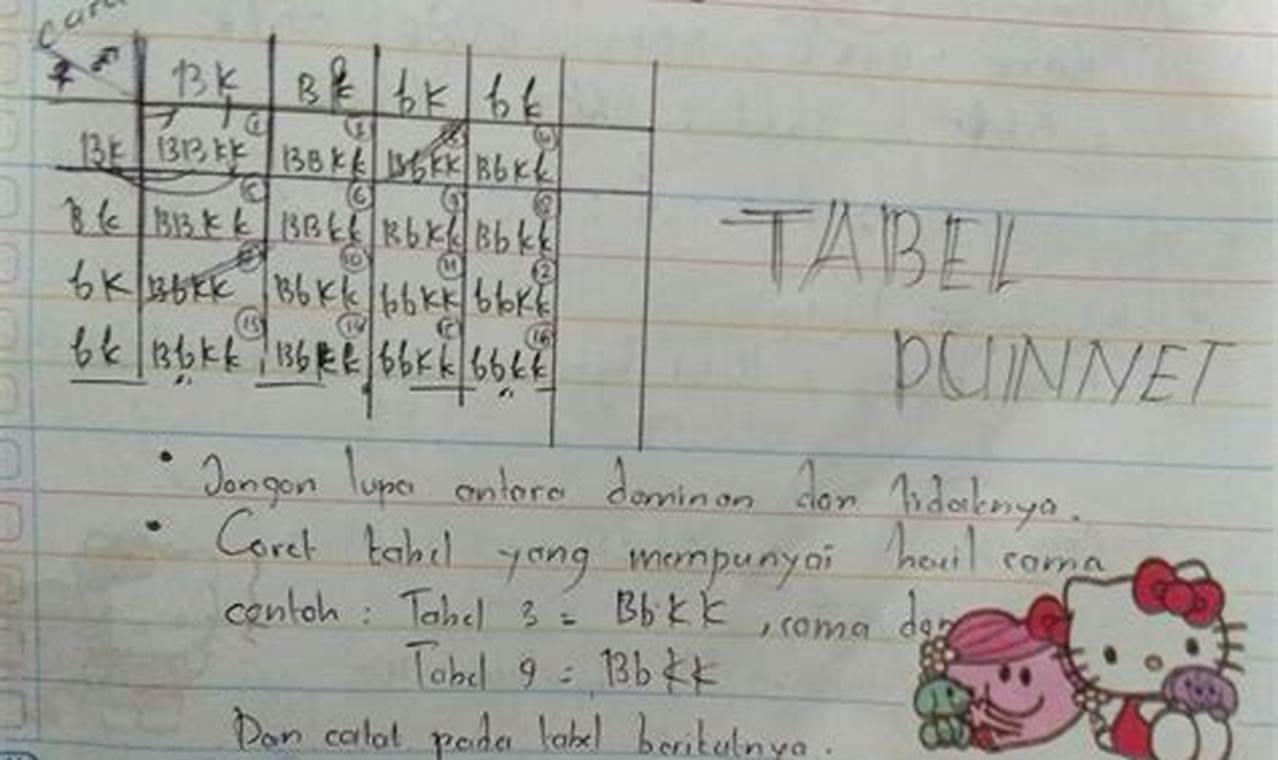 ♀ ♂ BK Bk bK bk
BK BBKK ① BBKk ② BbKK ③ BbKk ④
Bk BBKk ⑤ BBkk ⑥ BbKk ⑦ Bbkk ⑧
bK BbKK BbKk ⑩ bbKK ⑪ bbKk ⑫
bk BbKk ⑬ Bbkk ⑭ bbKk ⑮ bbkk ⑯
TABEL
PUNNET
• Jangan lupa antara dominan dan tidaknya.
• Coret tabel yang mempunyai hasil sama
contoh : Tabel 3 = BbKK , sama den
Tabel 9 = BbKK
Dan catat pada tabel berikutnya.